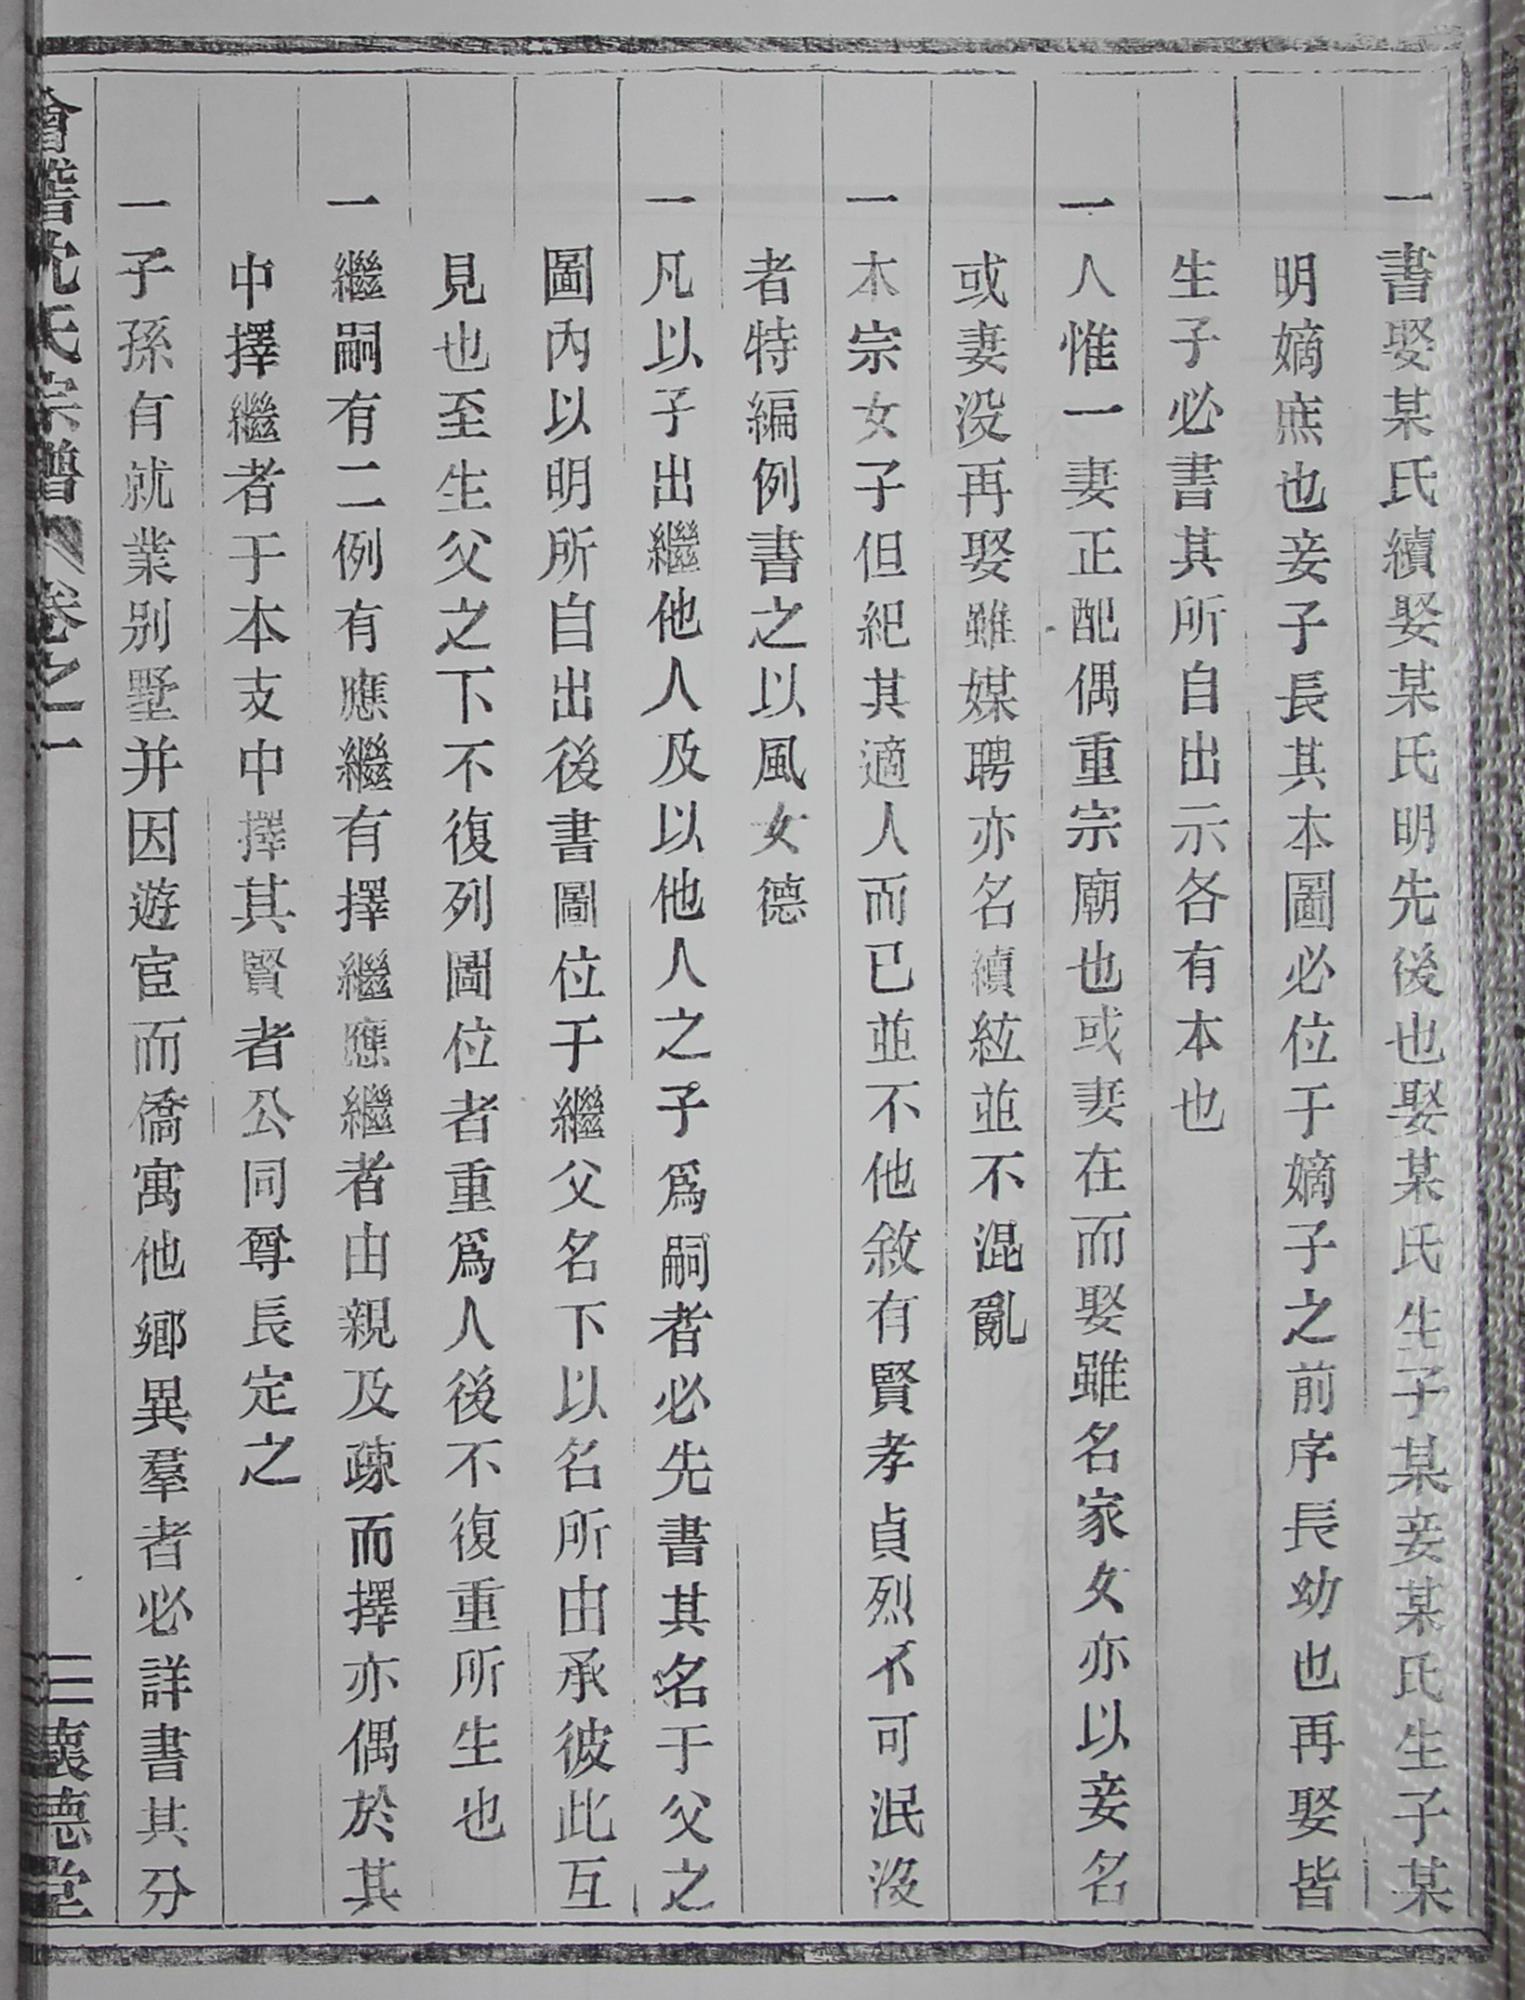 一書娶某氏續娶某氏明先後也娶某氏生子某妾某氏生子某
明嫡庶也妾子長其本圖必位于嫡子之前序長幼也再娶皆
生子必書其所自出示各有本也
一人惟一妻正配偶重宗廟也或妻在而娶雖名家女亦以妾名
或妻没再娶雖媒聘亦名續絃並不混亂
一本宗女子但紀其適人而已並不他敘有賢孝貞烈不可泯沒
者特編例書之以風女德
一凡以子出繼他人及以他人之子爲嗣者必先書其名于父之
圖內以明所自出後書圖位于繼父名下以名所由承彼此互
見也至生父之下不復列圖位者重爲人後不復重所生也
一繼嗣有二例有應繼有擇繼應繼者由親及疎而擇亦偶於其
中擇繼者于本支中擇其賢者公同尊長定之
一子孫有就業别墅并因遊宦而僑寓他鄉異羣者必詳書其分
會稽沈氏宗譜 卷之一 三 懷德堂